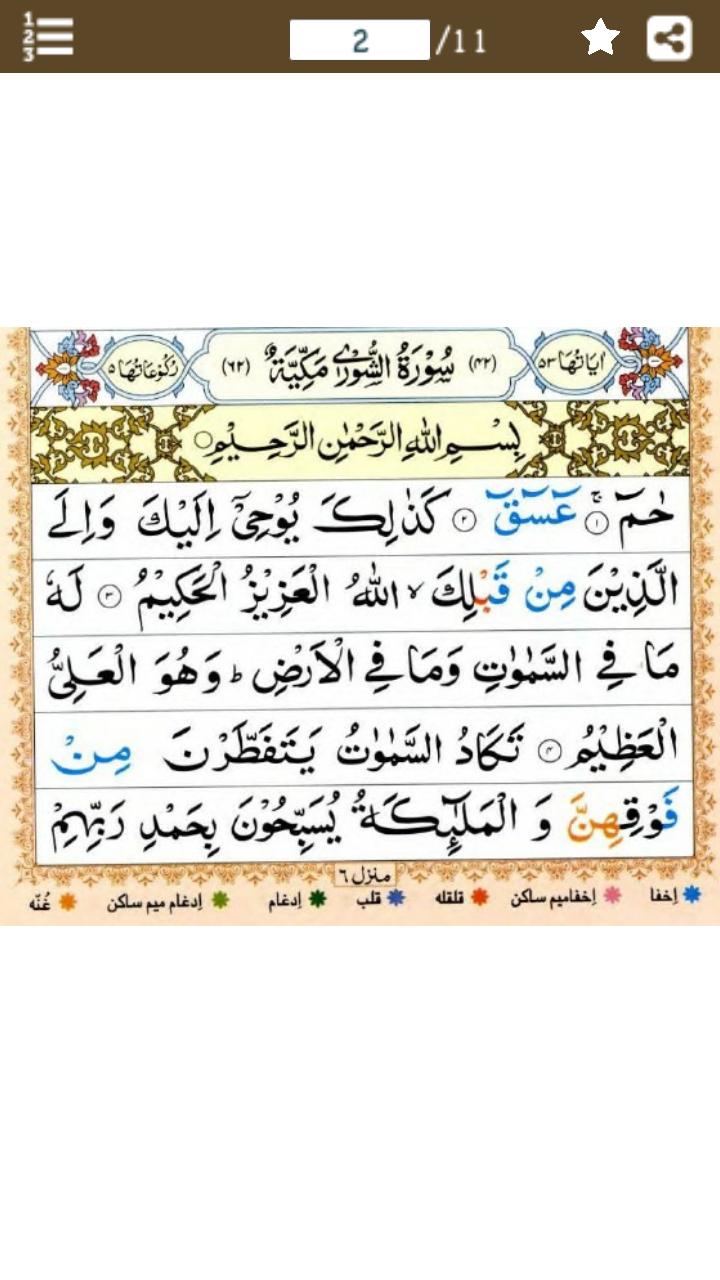 1
2
3
2 /11
اٰيَاتُهَا ٥٣ (٤٢) سُوْرَةُ الشُّوْرٰى مَكِّيَّةٌ (٦٢) رُكُوْعَاتُهَا ٥
بِسْمِ اللهِ الرَّحْمٰنِ الرَّحِيْمِ
حٰمٓ ۚ ١ عٓسٓقٓ ٢ كَذٰلِكَ يُوْحِىْٓ اِلَيْكَ وَاِلَى
الَّذِيْنَ مِنْ قَبْلِكَ ۙ اللهُ الْعَزِيْزُ الْحَكِيْمُ ٣ لَهٗ
مَا فِى السَّمٰوٰتِ وَمَا فِى الْاَرْضِ ؕ وَهُوَ الْعَلِىُّ
الْعَظِيْمُ ٤ تَكَادُ السَّمٰوٰتُ يَتَفَطَّرْنَ مِنْ
فَوْقِهِنَّ وَ الْمَلٰٓئِكَةُ يُسَبِّحُوْنَ بِحَمْدِ رَبِّهِمْ
منزل ٦
اِخفا اِخفامیم ساکن قلقله قلب اِدغام اِدغام میم ساکن غُنّه